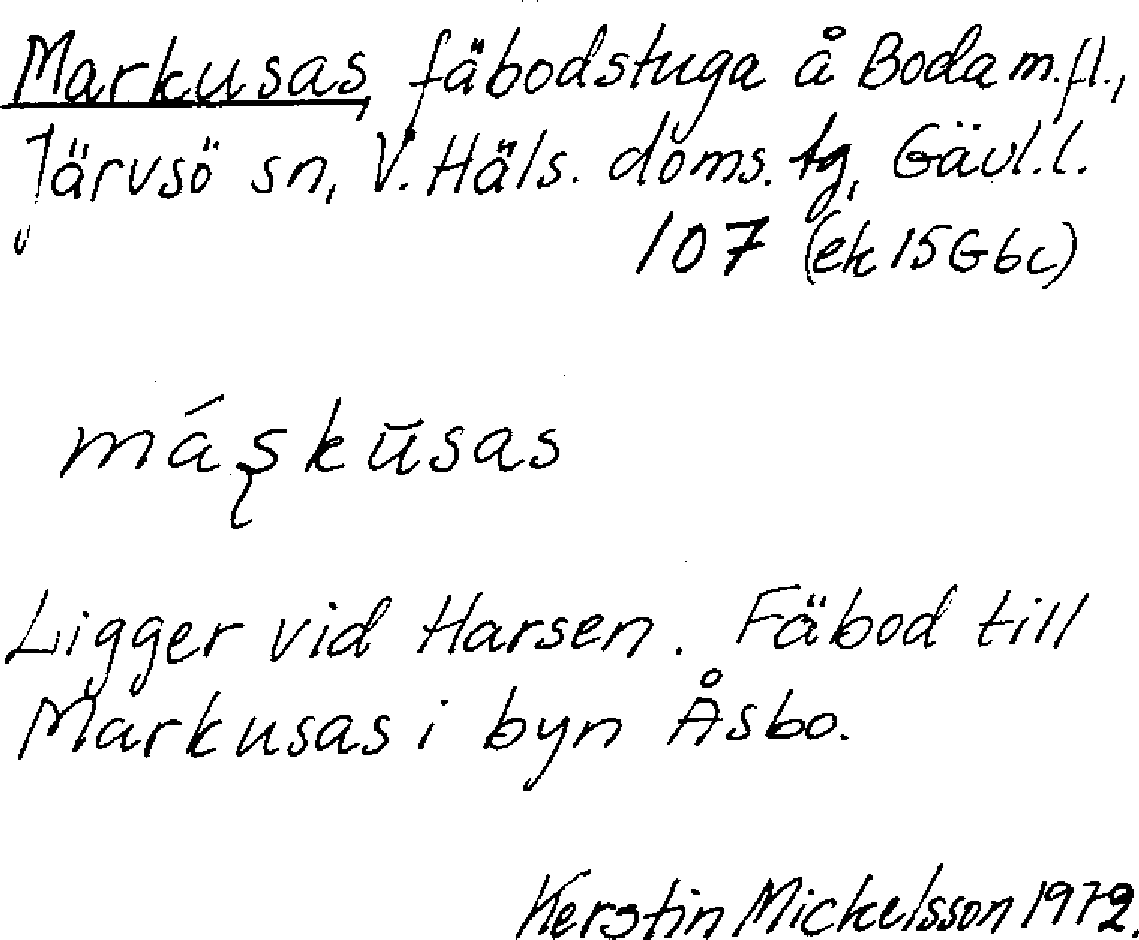 Markusas, fäbodstuga å Boda m.fl.,
Järvsö sn, V. Häls. doms. tg, Gävl.l.
107 (ek 15G6c)
máʂkūsas
Ligger vid Harsen. Fäbod till
Markusas i byn Åsbo.
Kerstin Mickelsson 1972.